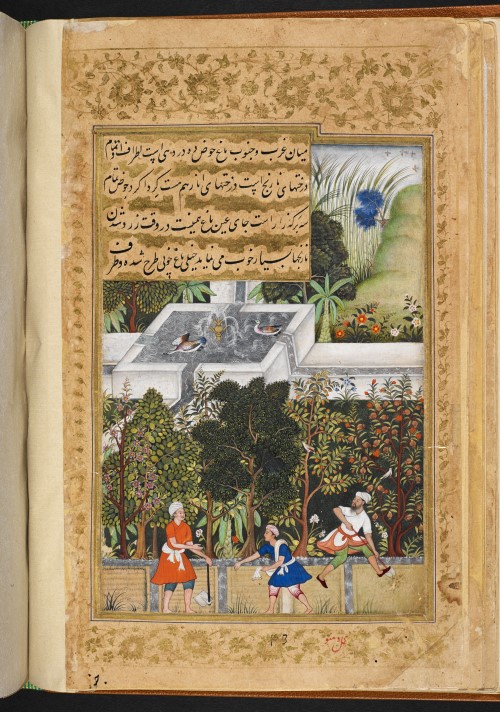 میان غرب و جنوب باغ حوض ده در دهی است اطراف او تمام
درختهای نارنج است درختهای انار هم هست گرداگرد حوض تمام
سه برگه زار است جای عین باغ همینست در وقت زرد شدن
نارنجها بسیار خوب می نماید خیلی باغ خوبی طرح شده و طرف